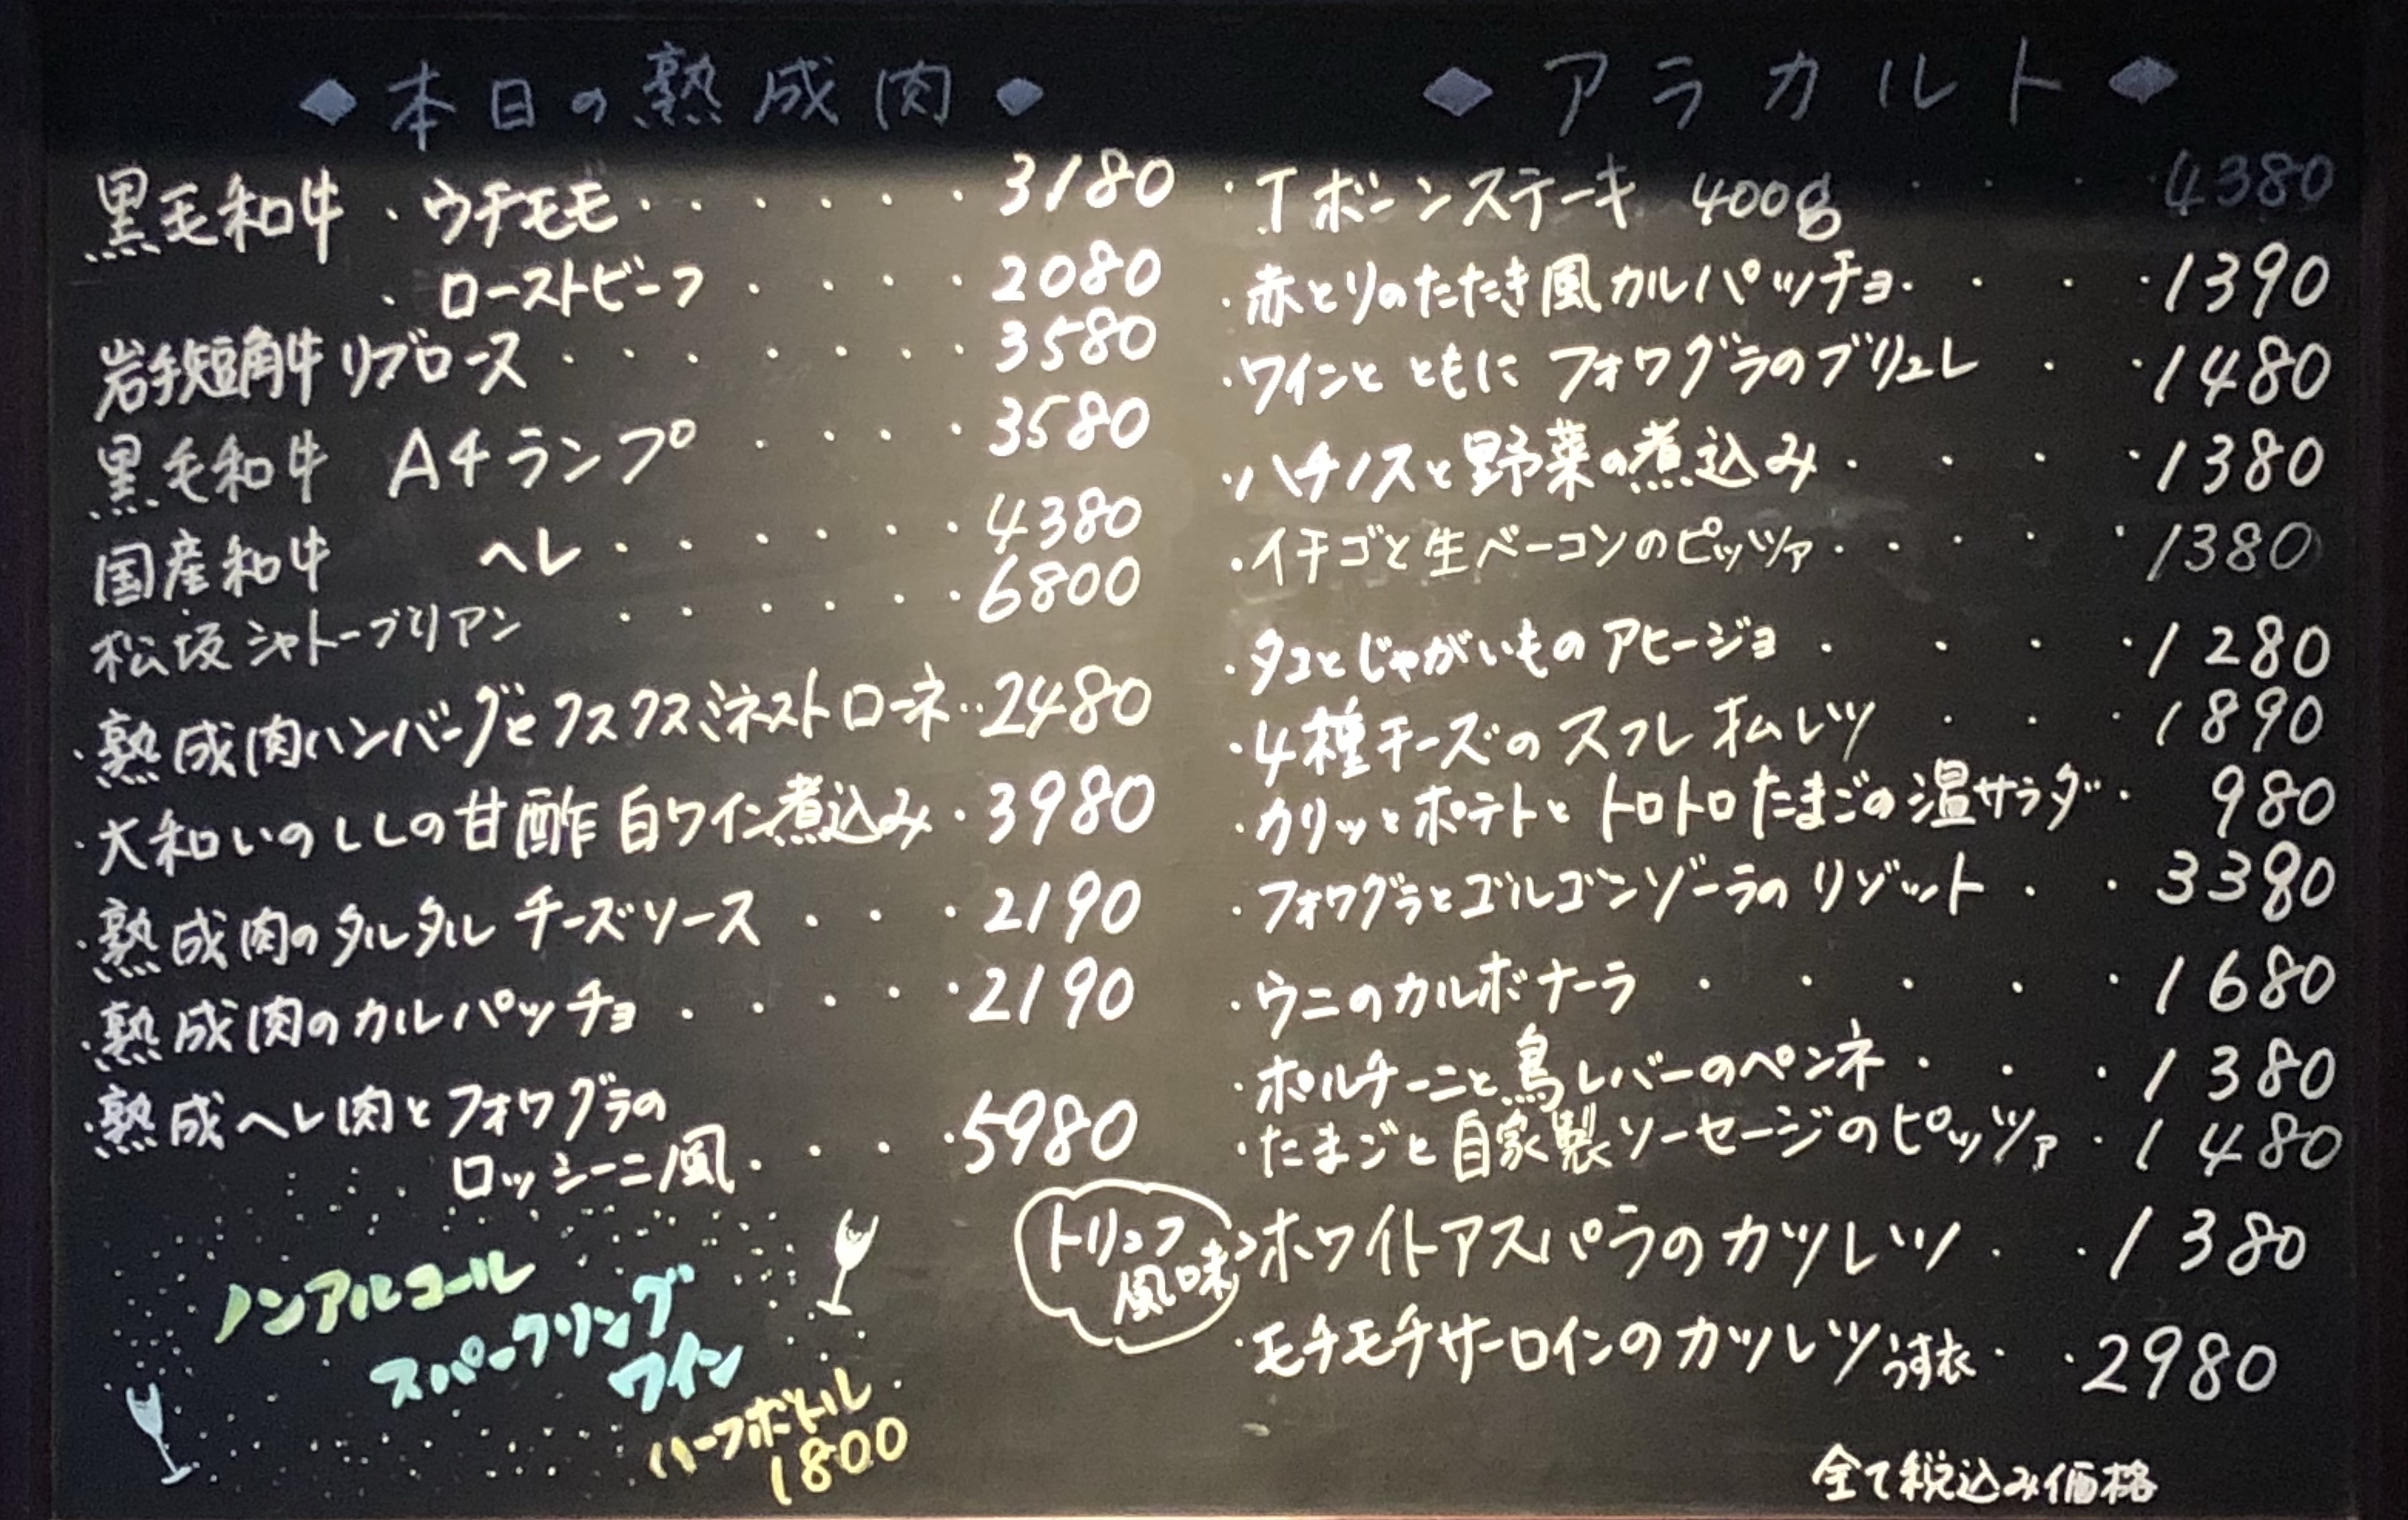 ◆本日の熟成肉◆
黒毛和牛・ウチモモ・・・・・・3180
・ローストビーフ・・・・2080
岩手短角牛リブロース・・・・・・・3580
黒毛和牛 A4ランプ・・・・3580
国産和牛 ヘレ・・・・・・4380
松坂シャトーブリアン・・・・・・6800
・熟成肉ハンバーグとクスクスミネストローネ・・2480
・大和いのししの甘酢白ワイン煮込み・3980
・熟成肉のタルタルチーズソース・・・2190
・熟成肉のカルパッチョ・・・・・2190
・熟成ヘレ肉とフォワグラの
ロッシーニ風・・・・5980
ノンアルコール
スパークリング
ワイン
ハーフボトル
1800
◆アラカルト◆
・Tボーンステーキ 400g・・・・4380
・赤とりのたたき風カルパッチョ・・・・1390
・ワインとともにフォワグラのブリュレ・・1480
・ハチノスと野菜の煮込み・・・・・1380
・イチゴと生ベーコンのピッツァ・・・・・1380
・タコとじゃがいものアヒージョ・・・・1280
・4種チーズのスフレオムレツ・・・1890
・カリッとポテトとトロトロたまごの温サラダ・980
・フォワグラとゴルゴンゾーラのリゾット・・3380
・ウニのカルボナーラ・・・・・1680
・ポルチーニと鳥レバーのペンネ・・・1380
・たまごと自家製ソーセージのピッツァ・1480
トリュフ
風味
ホワイトアスパラのカツレツ・・1380
・モチモチサーロインのカツレツうす衣・・2980
全て税込み価格